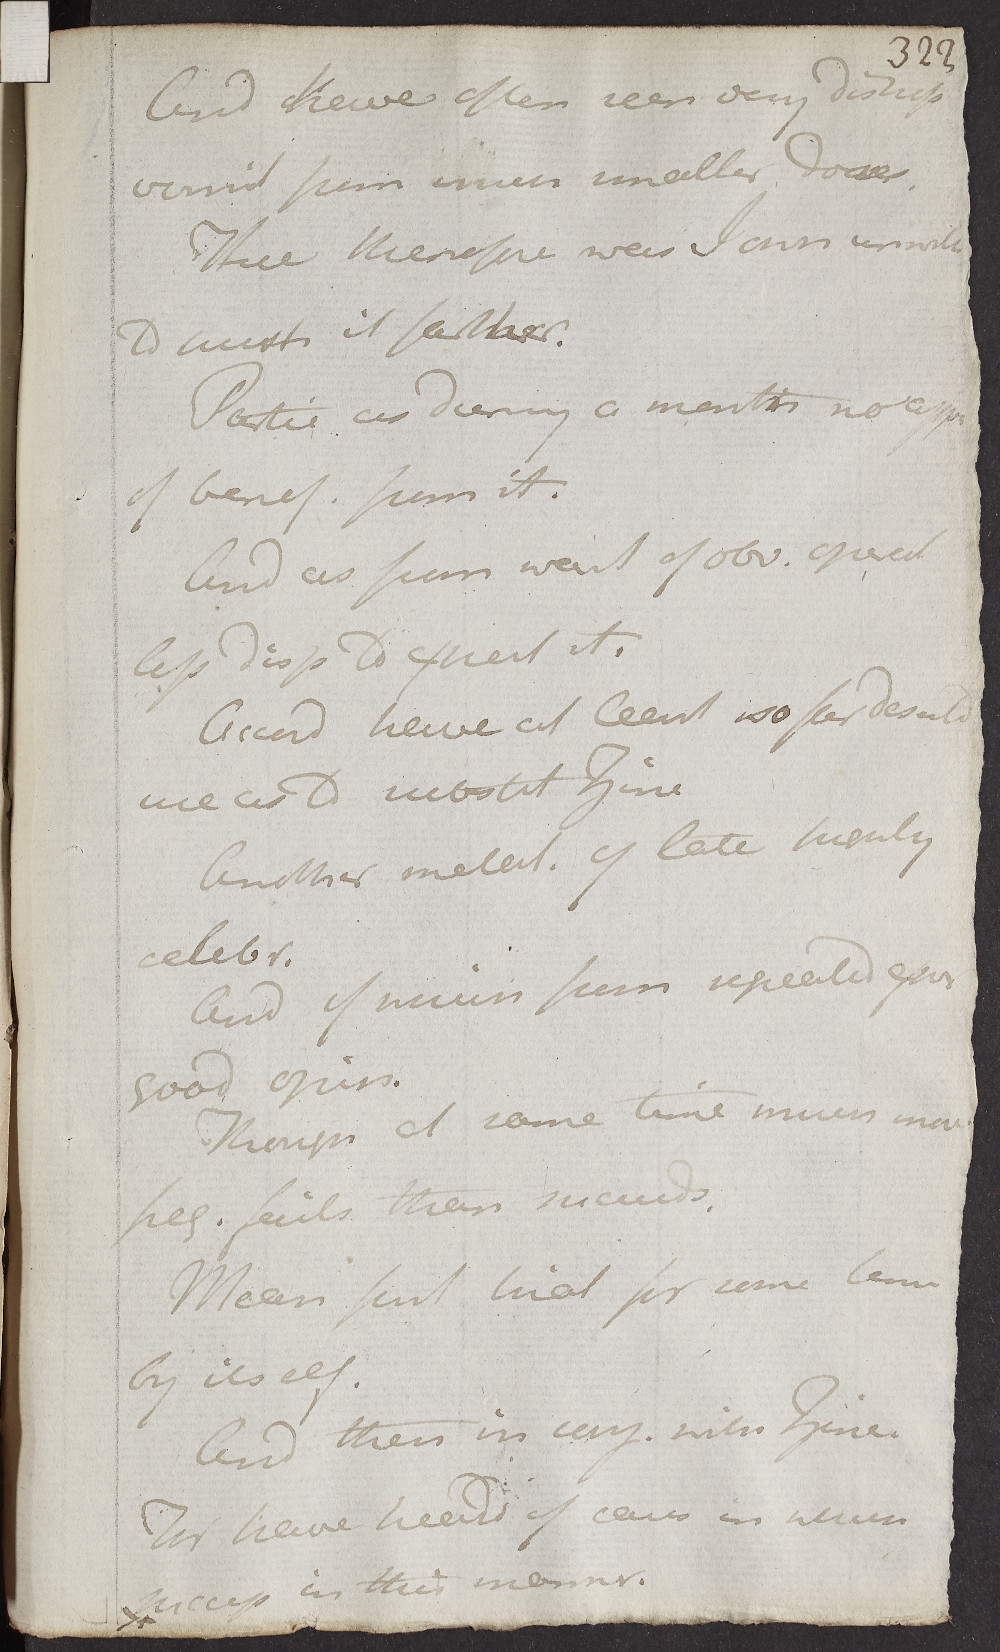 322
And have often seen very distress
vomit from much smaller doses.
This therefore was I own unwill
to push it farther.
Partic as during a month no appe
of benef. from it.
And as from want of obv. operat
less disp to expect it.
Accord have at least so far deserted
me as to substit Zinc
Another metal. of late highly
celebr.
And of which from repeated exper
good opin.
Though at same time much more
freq. fails than succeeds.
Mean first trial for some time
by itself.
And then in conj. with Zinc.
For have heard of cases in which
success in this manner.